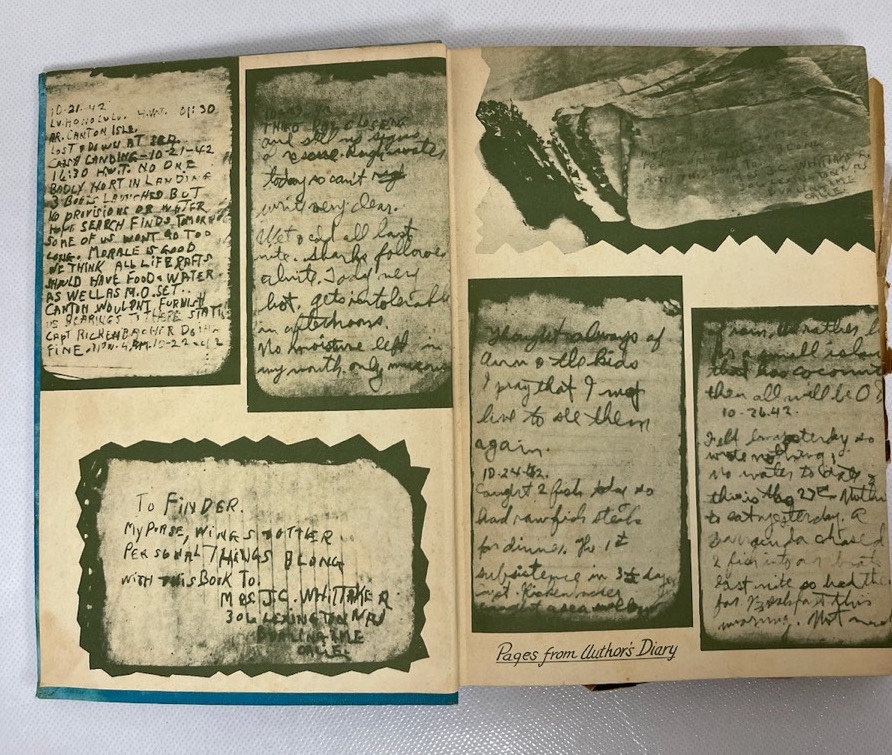 10-21-42
LV. HONOLULU. 4.WT. 01:30
AR. CANTON ISLE.
LOST & DOWN AT SEA.
CRASH LANDING-10-21-42
14:30 H.W.T. NO ONE
BADLY HURT IN LANDING
3 BOATS LAUNCHED BUT
NO PROVISIONS OR WATER
HOPE SEARCH FINDS TOMORROW
SOME OF US WONT GO TOO
LONG. MORALE IS GOOD
WE THINK ALL LIFE RAFTS
SHOULD HAVE FOOD & WATER
AS WELL AS M.O. SET.
CANTON WOULDN'T FURNISH
US BEARINGS
CAPT RICKENBACHER DOING
FINE.
and still no signs
a rescue. Rough water
today so can't
write very clear.
Wet & cold all last
nite. Sharks followed
all nite. Today very
hot, gets intolerable
in afternoons.
No moisture left in
my mouth. only mucous
TO FINDER.
MY PURSE, WINGS & OTHER
PERSONAL THINGS BLONG
WITH THIS BOOK TO.
MRS J.C. WHITTAKER
BURLINGAME
CALIF.
J.C. WHITTAKER
CALIF
Thought always of
Ann & the kids
I pray that I may
live to see them
again.
10-24-42.
Caught 2 fish today so
had raw fish steak
for dinner. The 1st
subsistence in 3 days
Capt. Rickenbacker
caught a sea
rain. Would rather
be a small island
that has coconuts
then all will be O.K.
10-26-42.
Felt lousy yesterday so
wrote nothing.
No water to date &
this is the Nothing
to eat yesterday. A
barracuda chased
2 fish into our boat
last nite so had them
for breakfast this
morning. Not
Pages from Author's Diary